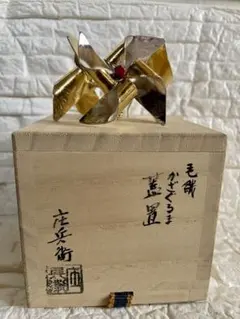 毛織
かざぐるま
蓋置
庄兵衛